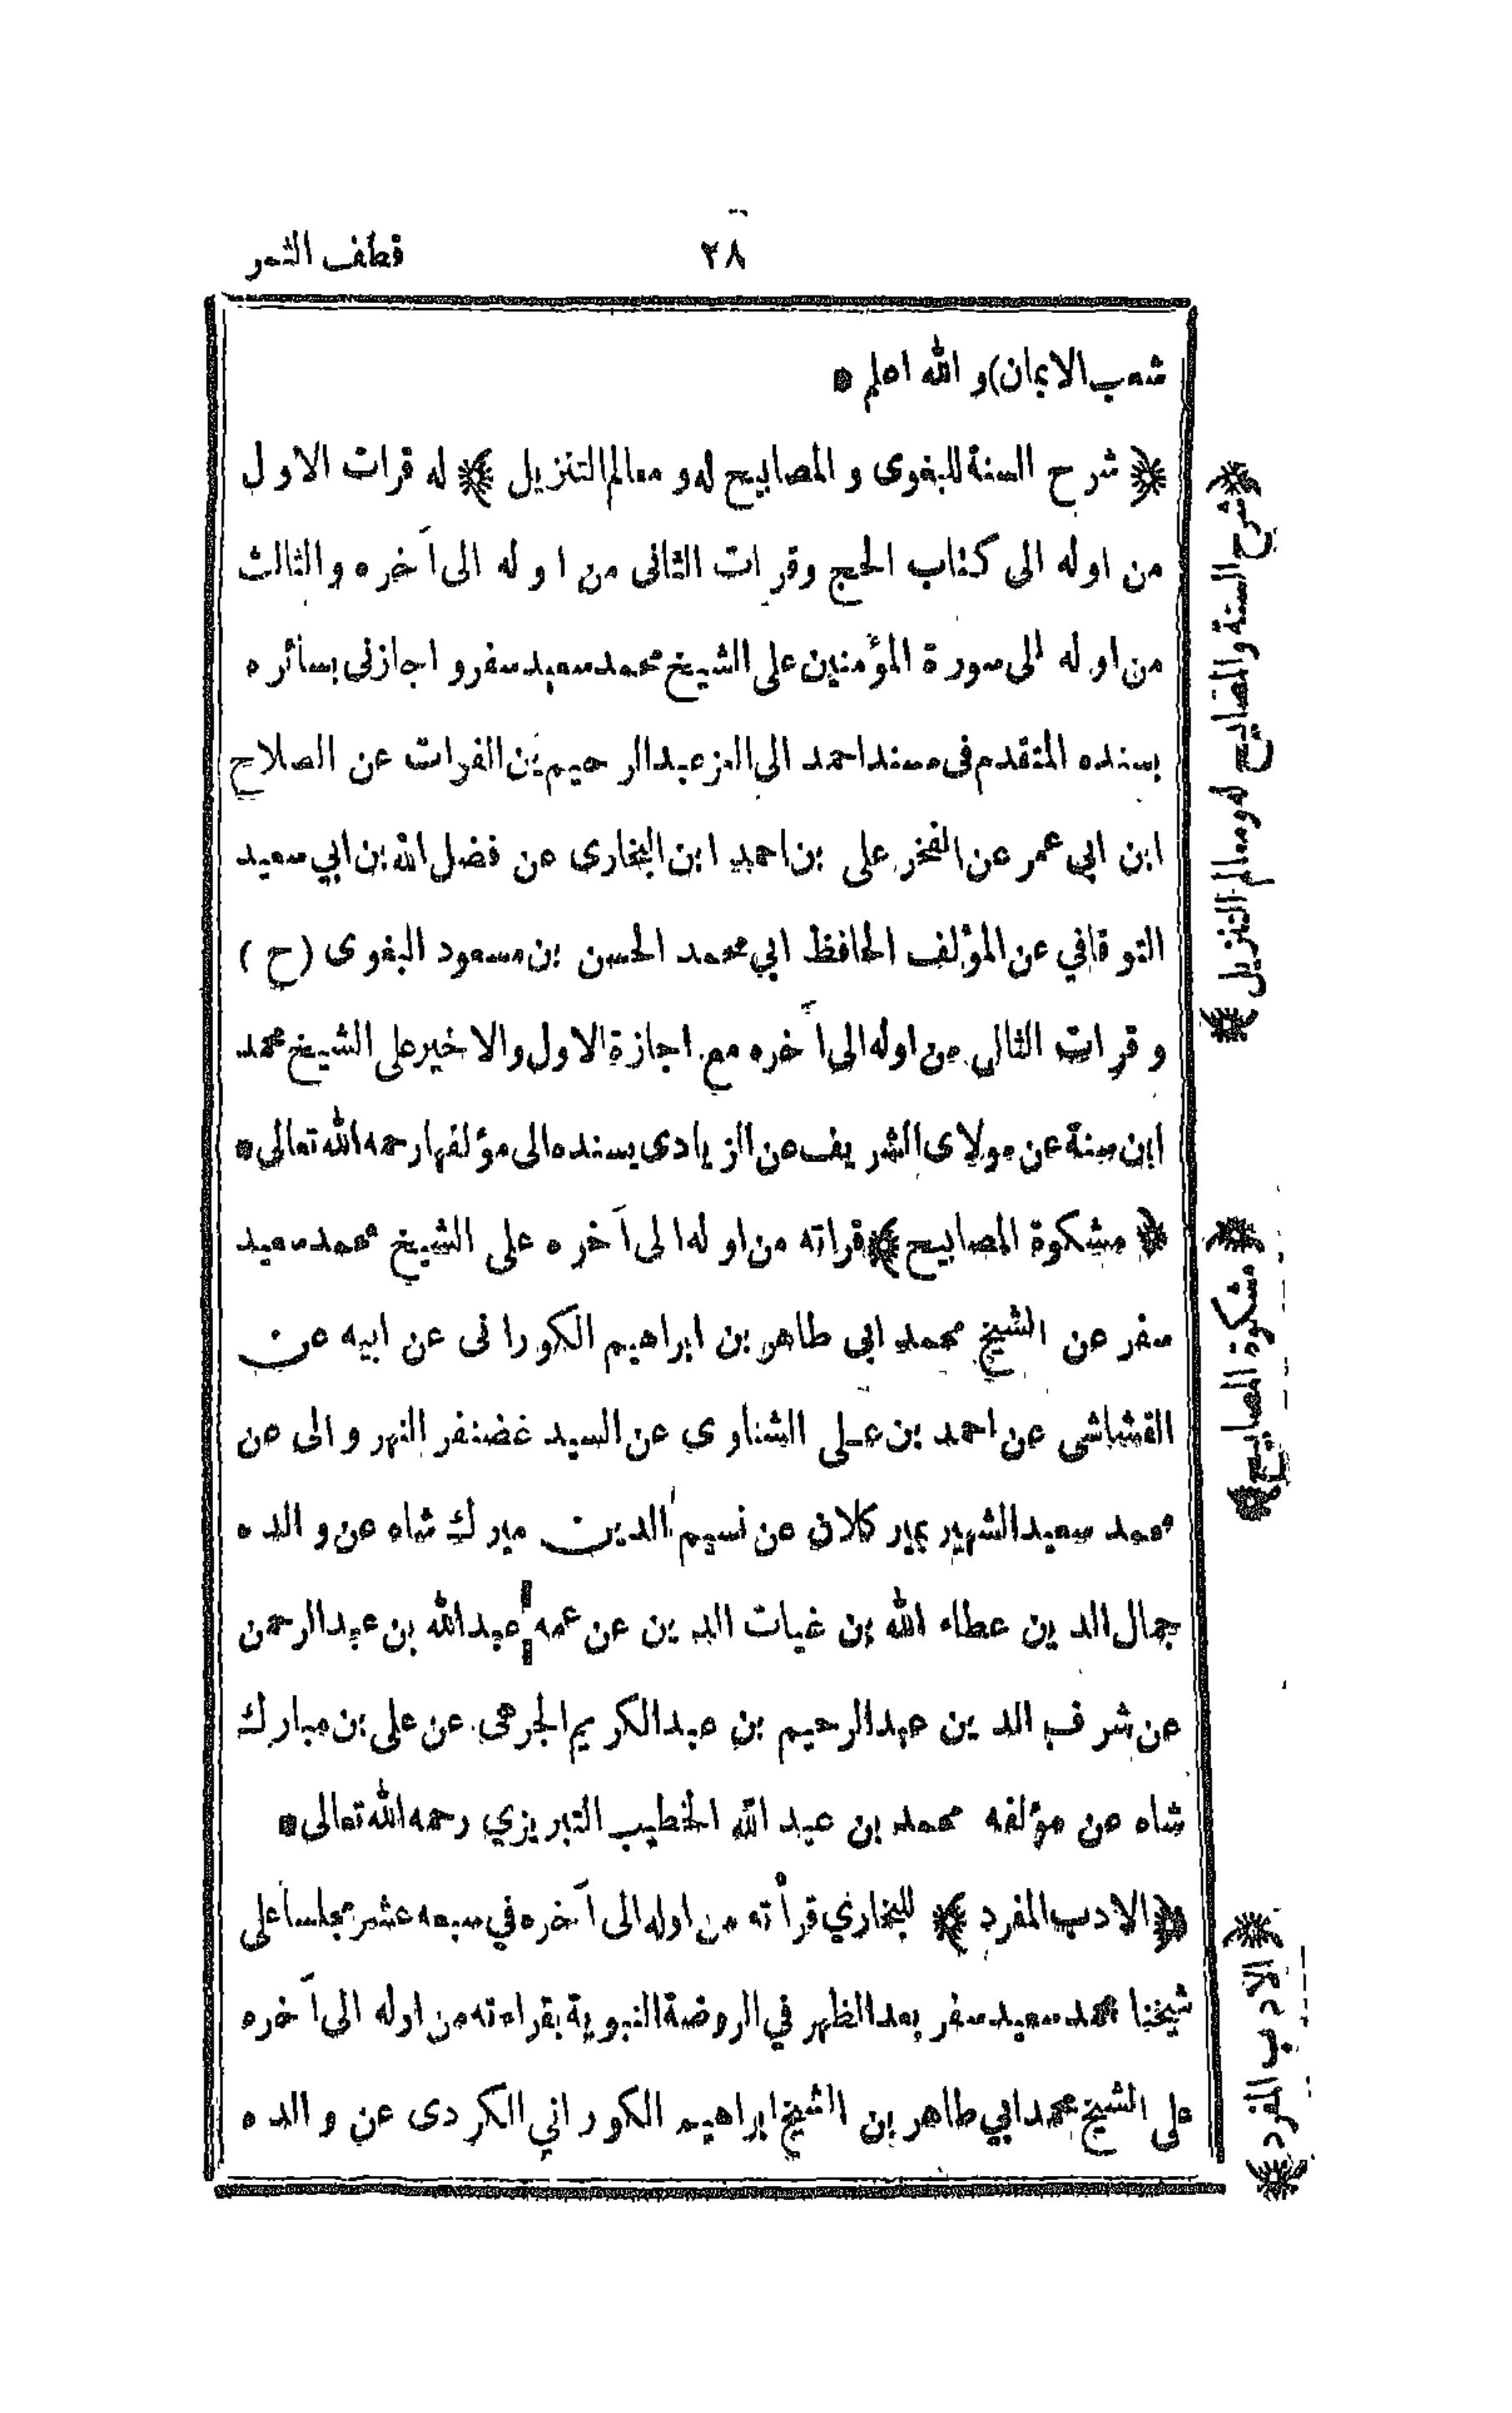 ٢٨
قطف الثمر
شعب الايمان) و الله اعلم
﴿ شرح السنة للبغوى و المصابيح له و معالم التنزيل ﴾ له قرات الاول
من اوله الى كتاب الحج وقرات الثانى من اوله الى آخره والثالث
من اوله الى سورة المؤمنين على الشيخ محمد سعيد سفر و اجازنى بسائره
بسنده المتقدم فى مسند احمد الى العز عبد الرحيم بن الفرات عن الصلاح
ابن ابي عمر عن الفخر على بن احمد ابن البخارى عن فضل الله بن ابي سعيد
التوقافي عن المؤلف الحافظ ابي محمد الحسن بن مسعود البغوى (ح)
و قرات الثانى من اوله الى آخره مع اجازة الاول والاخير على الشيخ محمد
ابن سنة عن مولاى الشريف عن الزيادى بسنده الى مؤلفها رحمه الله تعالى
﴿ مشكوة المصابيح ﴾ قراته من اوله الى آخره على الشيخ محمد سعيد
سفر عن الشيخ محمد ابى طاهر بن ابراهيم الكورانى عن ابيه عن
القشاشى عن احمد بن على الشناوي عن السيد غضنفر النهروالى عن
محمد سعيد الشهير بمير كلان عن نسيم الدين ميرك شاه عن والده
جمال الدين عطاء الله بن غياث الدين عن عمه عبد الله بن عبد الرحمن
عن شرف الدين عبد الرحيم بن عبد الكريم الجرهى عن على بن مبارك
شاه عن مؤلفه محمد بن عبد الله الخطيب التبريزي رحمه الله تعالى
﴿ الادب المفرد ﴾ للبخاري قرأته من اوله الى آخره في سبعه عشر مجلسا على
شيخنا محمد سعيد سفر بعد الظهر في الروضة النبوية بقراءته من اوله الى آخره
على الشيخ محمد ابي طاهر بن الشيخ ابراهيم الكوراني الكردى عن والده
﴿ شرح السنة والمصابيح له ومعالم التنزيل ﴾
﴿ مشكوة المصابيح ﴾
﴿ الادب المفرد ﴾